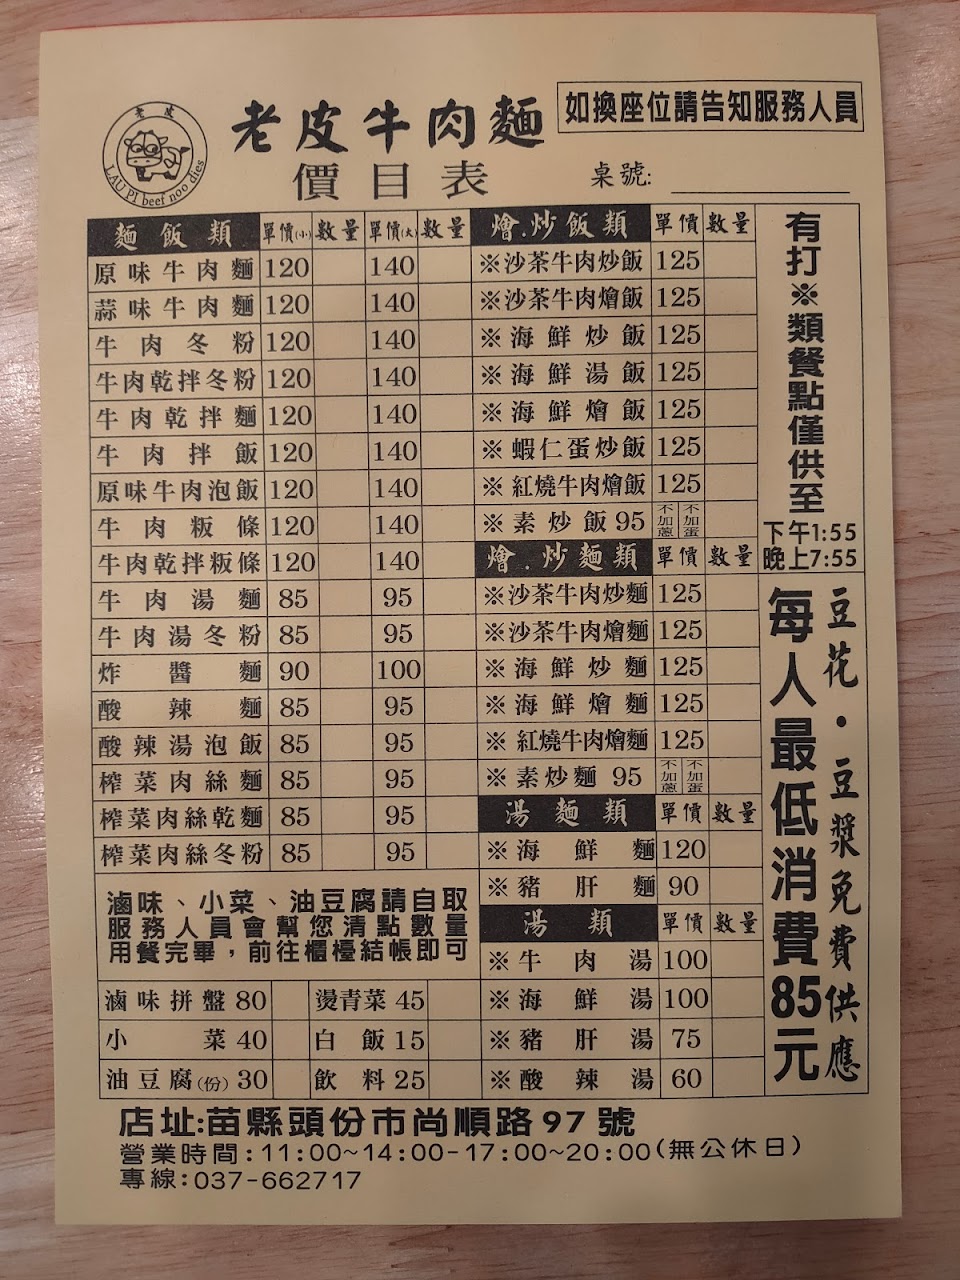 老皮
LAU PI beef noo dles
老皮牛肉麵
價目表
如換座位請告知服務人員
桌號:
麵飯類 單價(小) 數量 單價(大) 數量
原味牛肉麵 120 140
蒜味牛肉麵 120 140
牛肉冬粉 120 140
牛肉乾拌冬粉 120 140
牛肉乾拌麵 120 140
牛肉拌飯 120 140
原味牛肉泡飯 120 140
牛肉粄條 120 140
牛肉乾拌粄條 120 140
牛肉湯麵 85 95
牛肉湯冬粉 85 95
炸醬麵 90 100
酸辣麵 85 95
酸辣湯泡飯 85 95
榨菜肉絲麵 85 95
榨菜肉絲乾麵 85 95
榨菜肉絲冬粉 85 95
滷味、小菜、油豆腐請自取
服務人員會幫您清點數量
用餐完畢，前往櫃檯結帳即可
滷味拼盤 80 燙青菜 45
小菜 40 白飯 15
油豆腐(份) 30 飲料 25
燴.炒飯類 單價 數量
※沙茶牛肉炒飯 125
※沙茶牛肉燴飯 125
※海鮮炒飯 125
※海鮮湯飯 125
※海鮮燴飯 125
※蝦仁蛋炒飯 125
※紅燒牛肉燴飯 125
※素炒飯 95 不加蔥 不加蛋
燴.炒麵類 單價 數量
※沙茶牛肉炒麵 125
※沙茶牛肉燴麵 125
※海鮮炒麵 125
※海鮮燴麵 125
※紅燒牛肉燴麵 125
※素炒麵 95 不加蔥 不加蛋
湯麵類 單價 數量
※海鮮麵 120
※豬肝麵 90
湯類 單價 數量
※牛肉湯 100
※海鮮湯 100
※豬肝湯 75
※酸辣湯 60
有打※類餐點僅供至
下午1:55
晚上7:55
豆花・豆漿免費供應
每人最低消費85元
店址:苗縣頭份市尚順路97號
營業時間:11:00~14:00-17:00~20:00(無公休日)
專線:037-662717